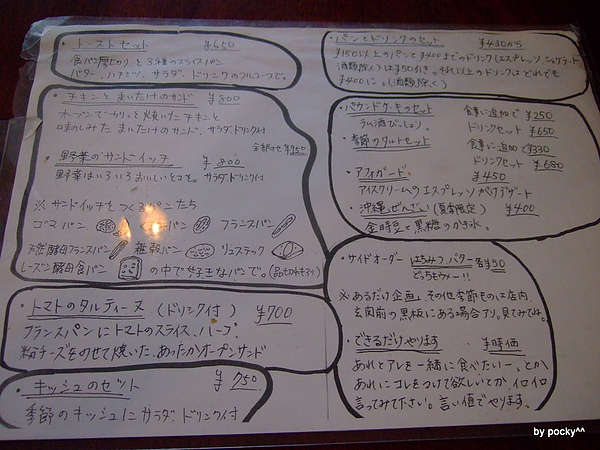 ・トーストセット ¥650
食パン厚切りと3種のスライスパン
バター、ハチミツ、サラダ、ドリンクのフルコースで。
・チキンとまいたけのサンド ¥800
オーブンでカリッと焼いたチキンと
味のしみたまいたけのサンド、サラダ、ドリンク付
全部のせ¥950
・野菜のサンドイッチ ¥800
野菜はいろいろおいしいとこを。サラダ、ドリンク付
※サンドイッチをつくるパンたち
ゴマパン パン フランスパン
天然酵母フランスパン 雑穀パン リュスティック
レーズン酵母食パン の中で好きなパンで。(品切れもアリ)
・トマトのタルティーヌ(ドリンク付) ¥700
フランスパンにトマトのスライス、ハーブ、
粉チーズをのせて焼いた、あったかオープンサンド
・キッシュのセット ¥750
季節のキッシュにサラダ、ドリンク付
・パンとドリンクのセット ¥430から
¥150以上のパンと¥400までのドリンク(エスプレッソショコラート
酒類除く)は¥50引き。それ以上のドリンクはどれでも
¥400に。(酒類除く)
・パウンドケーキのセット 食事に追加で ¥250
ラム酒びっしょり。 ドリンクセット ¥650
・季節のタルトセット 食事に追加で ¥330
ドリンクセット ¥680
・アフォガード ¥450
アイスクリームのエスプレッソがけデザート
・沖縄ぜんざい(夏季限定) ¥400
金時豆と黒糖のかき氷。
・サイドオーダー はちみつ、バター 各¥50
どっちもウメー!!
※あるだけ企画、その他季節ものは店内、
玄関前の黒板にある場合アリ。見てみてね。
・できるだけやります ¥時価
あれとアレを一緒に食べたいー。とか
あれにコレをつけて欲しいとか、イロイロ
言ってみて下さい。言い値でやります。
by pocky^^